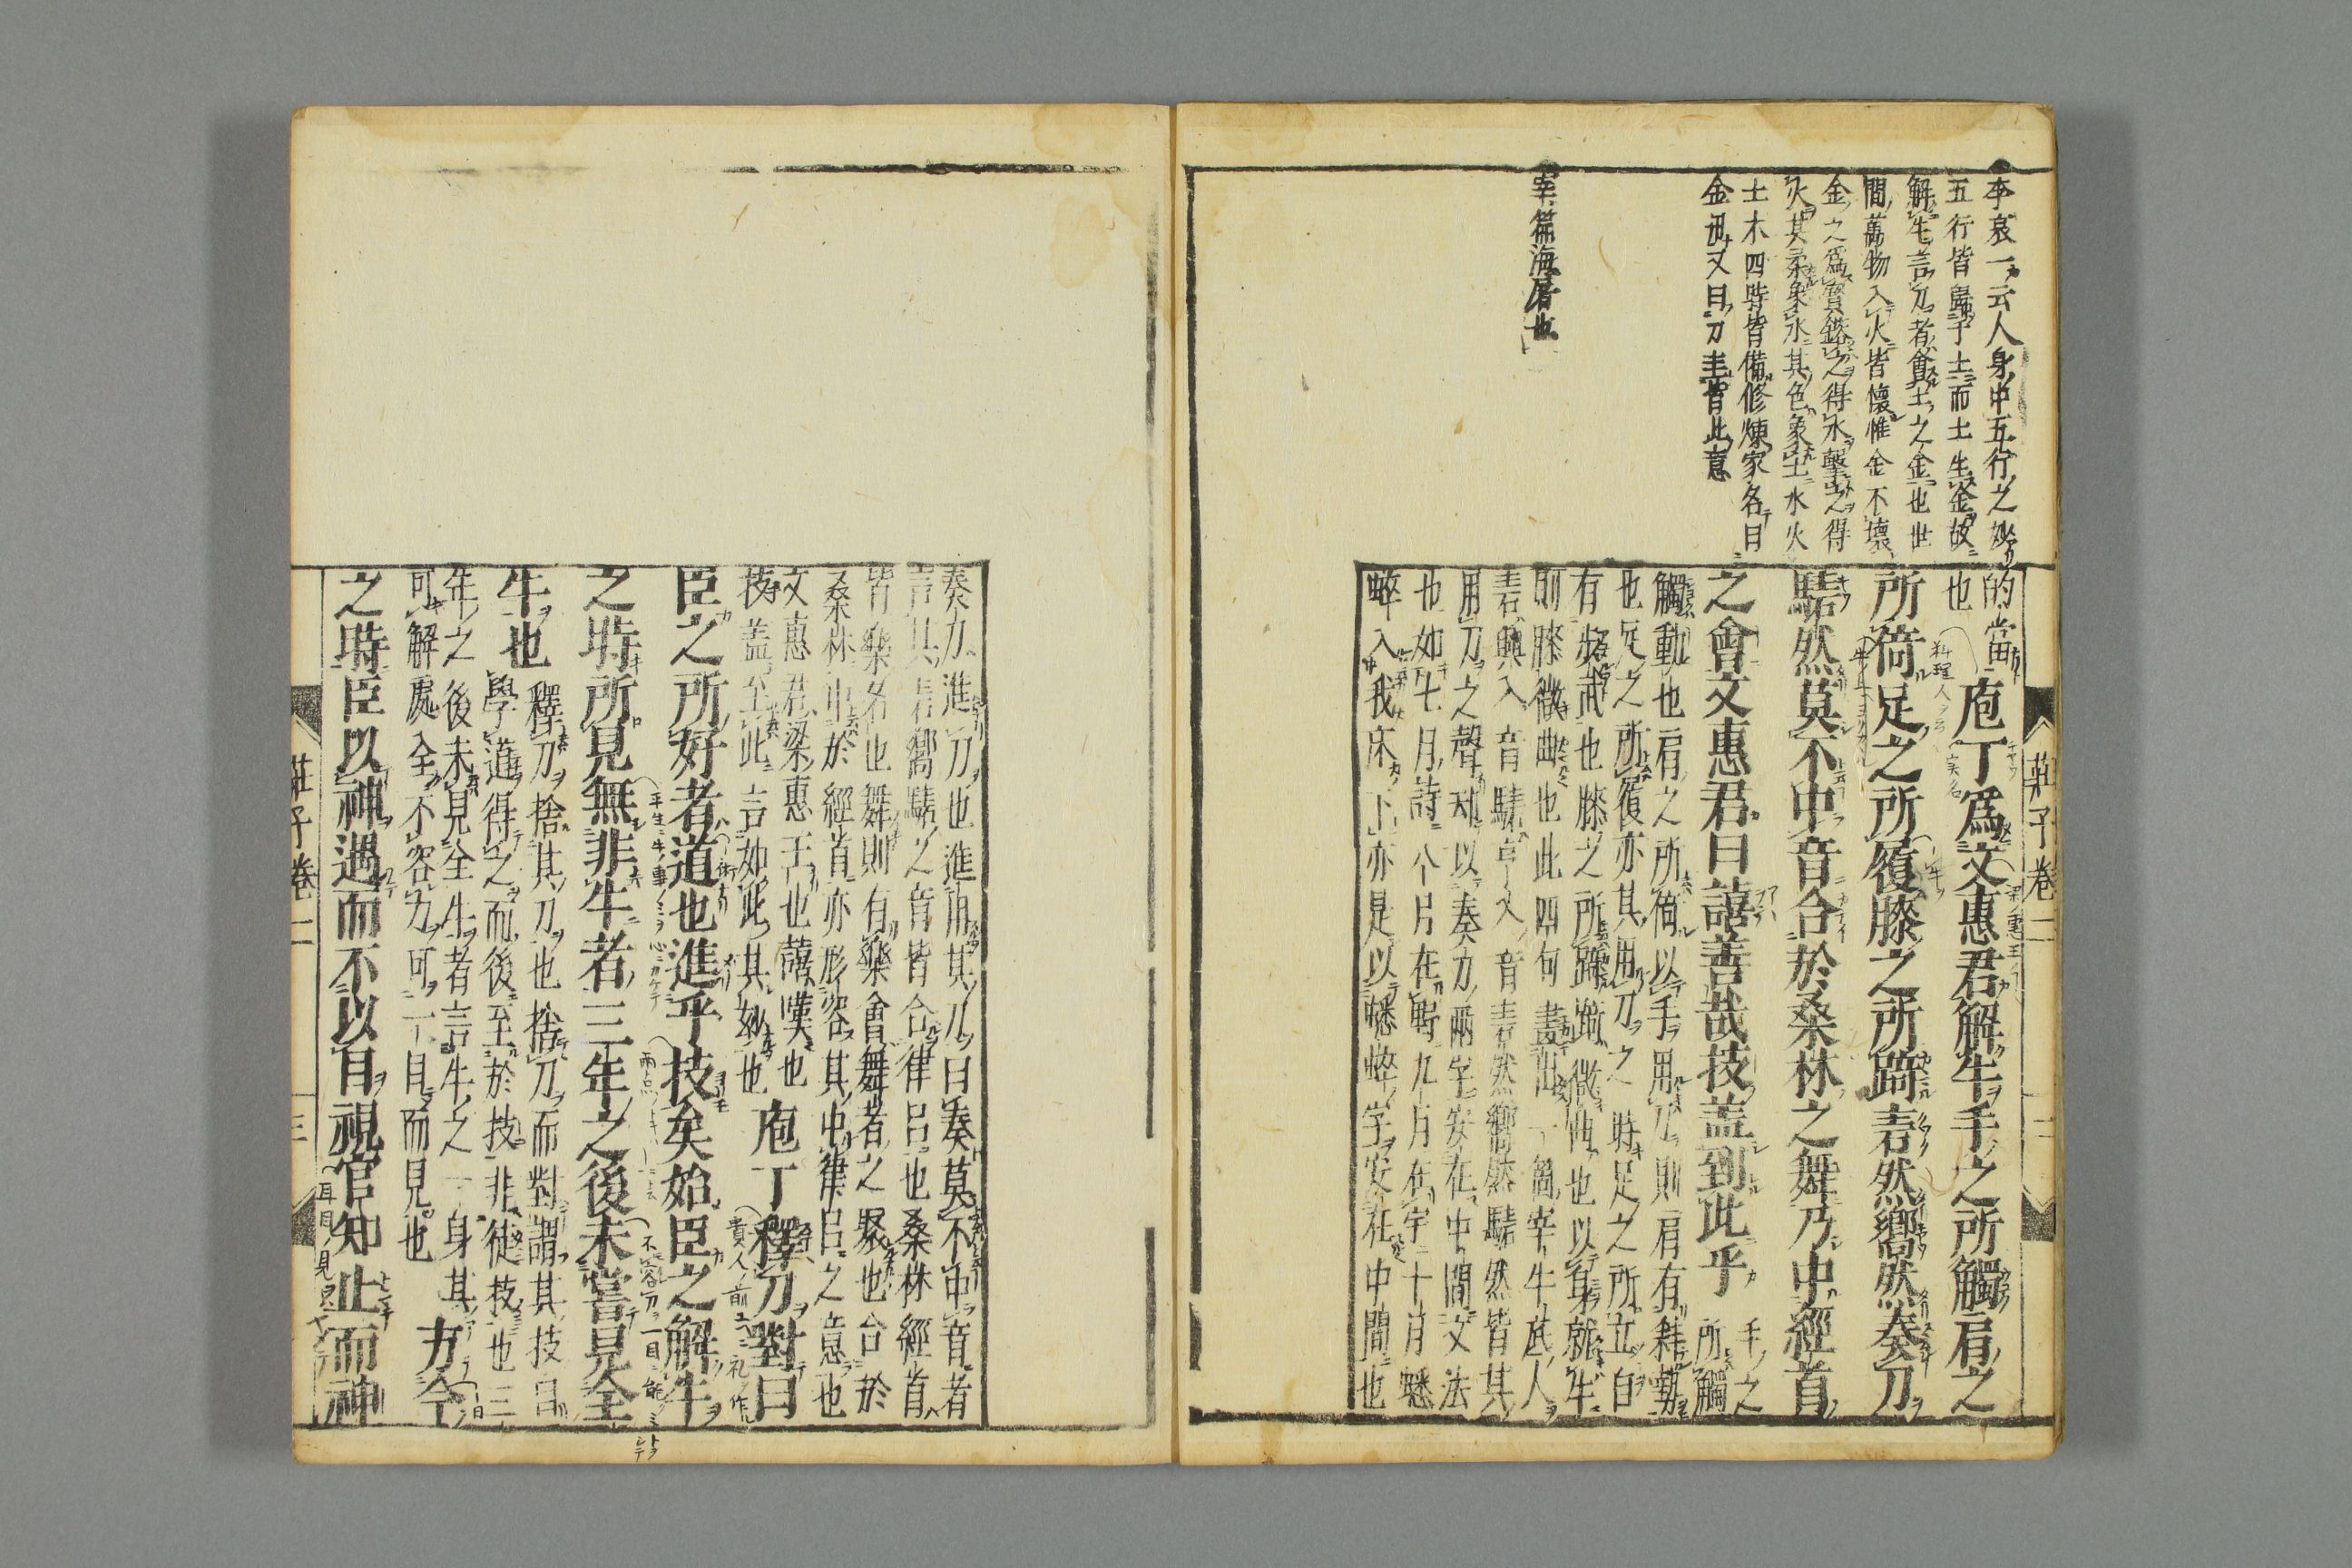 李哀一云人身中五行之妙
五行皆歸于土而土生金故
解牛言刀者食土之金也世
間萬物入火皆懷惟金不壞
金之爲寶鎔之得水擊之得
火其柔象水其色象土水火
土木四時皆備修煉家各曰
金丹又曰刀圭皆此意
宰篇海屠也
的當
也
庖丁爲文惠君解牛手之所觸肩之
所倚足之所履膝之所踦砉然嚮然奏刀
騞然莫不中音合於桑林之舞乃中經首
之會文惠君曰譆善哉技盖到此乎
手之
所觸
觸動也肩之所倚以手用刀則肩有斜勢
也足之所履亦其用刀之時足之所立自
有步武也膝之所踦踦微曲也以身就牛
則膝微曲也此四句畫出一箇宰牛底人
砉輿入音騞亨入音砉然嚮然騞然皆其
用刀之聲却以奏刀兩字安在中間文法
也如七月詩七月在野八月在宇十月蟋
蟀入我床下亦是以蟋蟀字安在中間也
莊子卷二
奏刀進刀也進用其刀曰奏莫不中音者
言其砉嚮騞之音皆合律呂也桑林經首
皆樂名也舞則有樂會舞者之聚也合於
桑林中於經首亦形容其中律呂之意也
文惠君梁惠王也譆嘆也
技盖至此言如此其妙也
庖丁釋刀對曰
臣之所好者道也進乎技矣始臣之解牛
之時所見無非牛者三年之後未嘗見全
牛也
釋刀捨其刀也捨刀而對謂其技曰
學道得之而後至於技非徒技也三
年之後未見全牛者言牛之一身其
可解處全不容力可一目而見也
方今
之時臣以神遇而不以目視官知止而神
莊子卷二
三